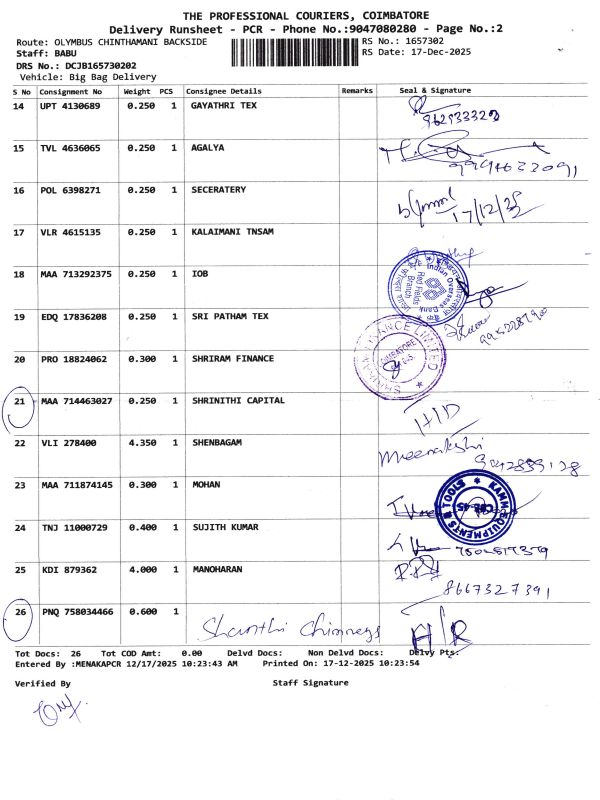 THE PROFESSIONAL COURIERS, COIMBATORE
Delivery Runsheet - PCR - Phone No.:9047080280 - Page No.:2
Route: OLYMBUS CHINTHAMANI BACKSIDE RS No.: 1657302
Staff: BABU RS Date: 17-Dec-2025
DRS No.: DCJB165730202
Vehicle: Big Bag Delivery
S No Consignment No Weight PCS Consignee Details Remarks Seal & Signature
14 UPT 4130689 0.250 1 GAYATHRI TEX
15 TVL 4636065 0.250 1 AGALYA
16 POL 6398271 0.250 1 SECERATERY
17/12/25
17 VLR 4615135 0.250 1 KALAIMANI TNSAM
18 MAA 713292375 0.250 1 IOB
Indian Overseas Bank
Red Fields
Branch
19 EDQ 17836208 0.250 1 SRI PATHAM TEX
20 PRO 18824062 0.300 1 SHRIRAM FINANCE
21 MAA 714463027 0.250 1 SHRINITHI CAPITAL
22 VLI 278400 4.350 1 SHENBAGAM Meenakshi
23 MAA 711874145 0.300 1 MOHAN
24 TNJ 11000729 0.400 1 SUJITH KUMAR
25 KDI 879362 4.000 1 MANOHARAN
8667327391
26 PNQ 758034466 0.600 1 Shanthi Chimneys
Tot Docs: 26 Tot COD Amt: 0.00 Delvd Docs: Non Delvd Docs: Delvy Pts:
Entered By :MENAKAPCR 12/17/2025 10:23:43 AM Printed On: 17-12-2025 10:23:54
Verified By Staff Signature